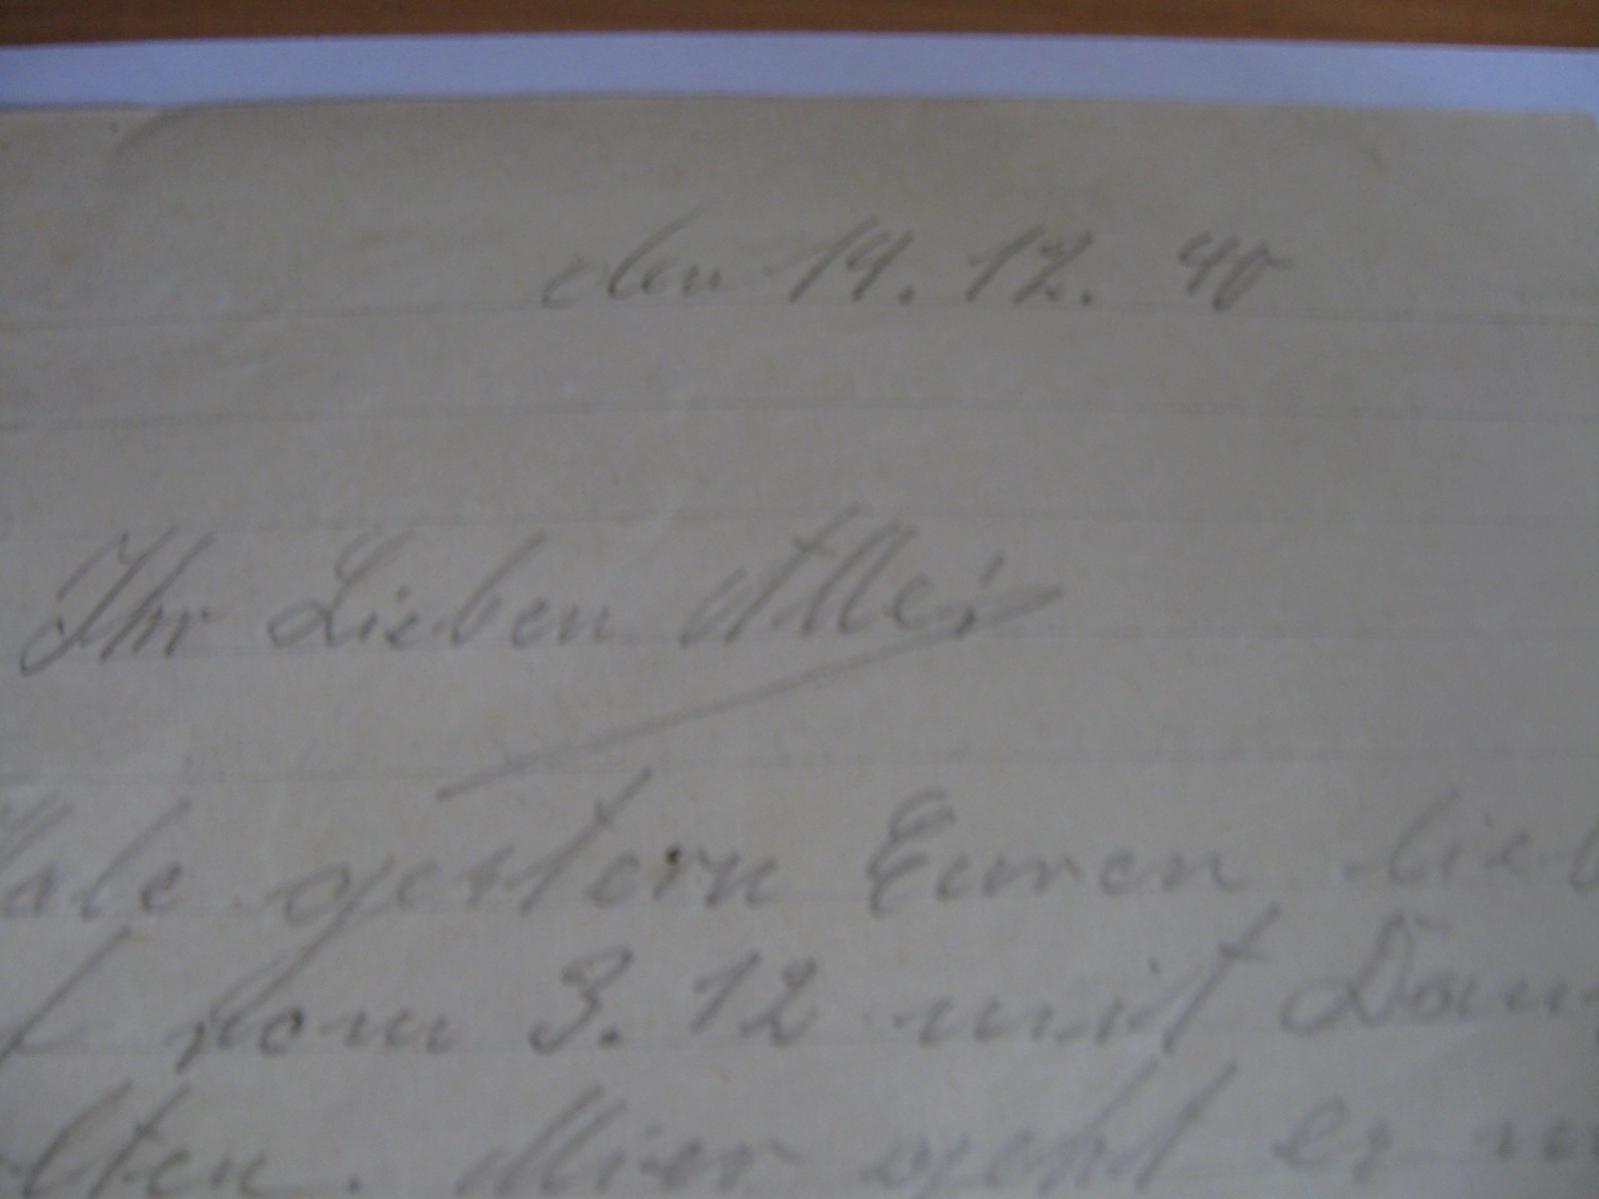 den 14. 12. 40
Ihr Lieben Alle!
Habe gestern Euren lieb
f vom 3. 12 mit Dan
lten. Mier geht es